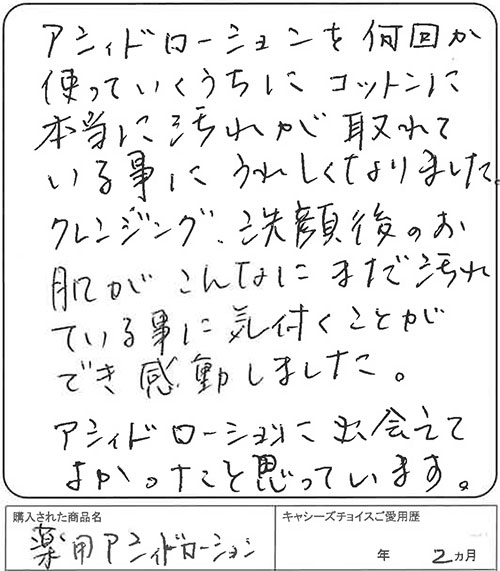 アシィドローションを何回か
使っていくうちに コットンに
本当に汚れが取れて
いる事に うれしくなりました。
クレンジング、洗顔後のお
肌が こんなに まだ汚れ
ている事に気付くことが
でき感動しました。
アシィドローションに出会えて
よかったなと思っています。
購入された商品名
薬用アシィドローション
キャシーズチョイスご愛用歴
年 2ヵ月